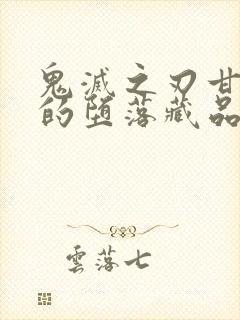 鬼滅之刃甘
的堕落藏品
雲落七